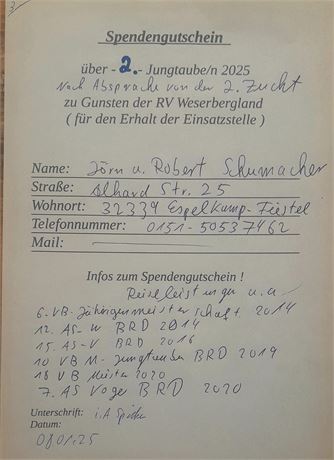 Spendengutschein
über - 2. - Jungtaube/n 2025
Nach Absprache von der 2. Zucht
zu Gunsten der RV Weserbergland
( für den Erhalt der Einsatzstelle )
Name: Jörn u. Robert Schumacher
Straße: Alhard Str. 25
Wohnort: 32339 Espelkamp-Fiestel
Telefonnummer: 0151-50537462
Mail:
Infos zum Spendengutschein !
Reiseleistungen u.a.
6. VB. Jährigenmeisterschaft 2014
12. AS-W BRD 2014
15. AS-V BRD 2016
10 VB M- Jungtauben BRD 2019
18 VB Meister 2020
7. AS Vogel BRD 2020
Unterschrift: i.A
Datum:
08.01.25